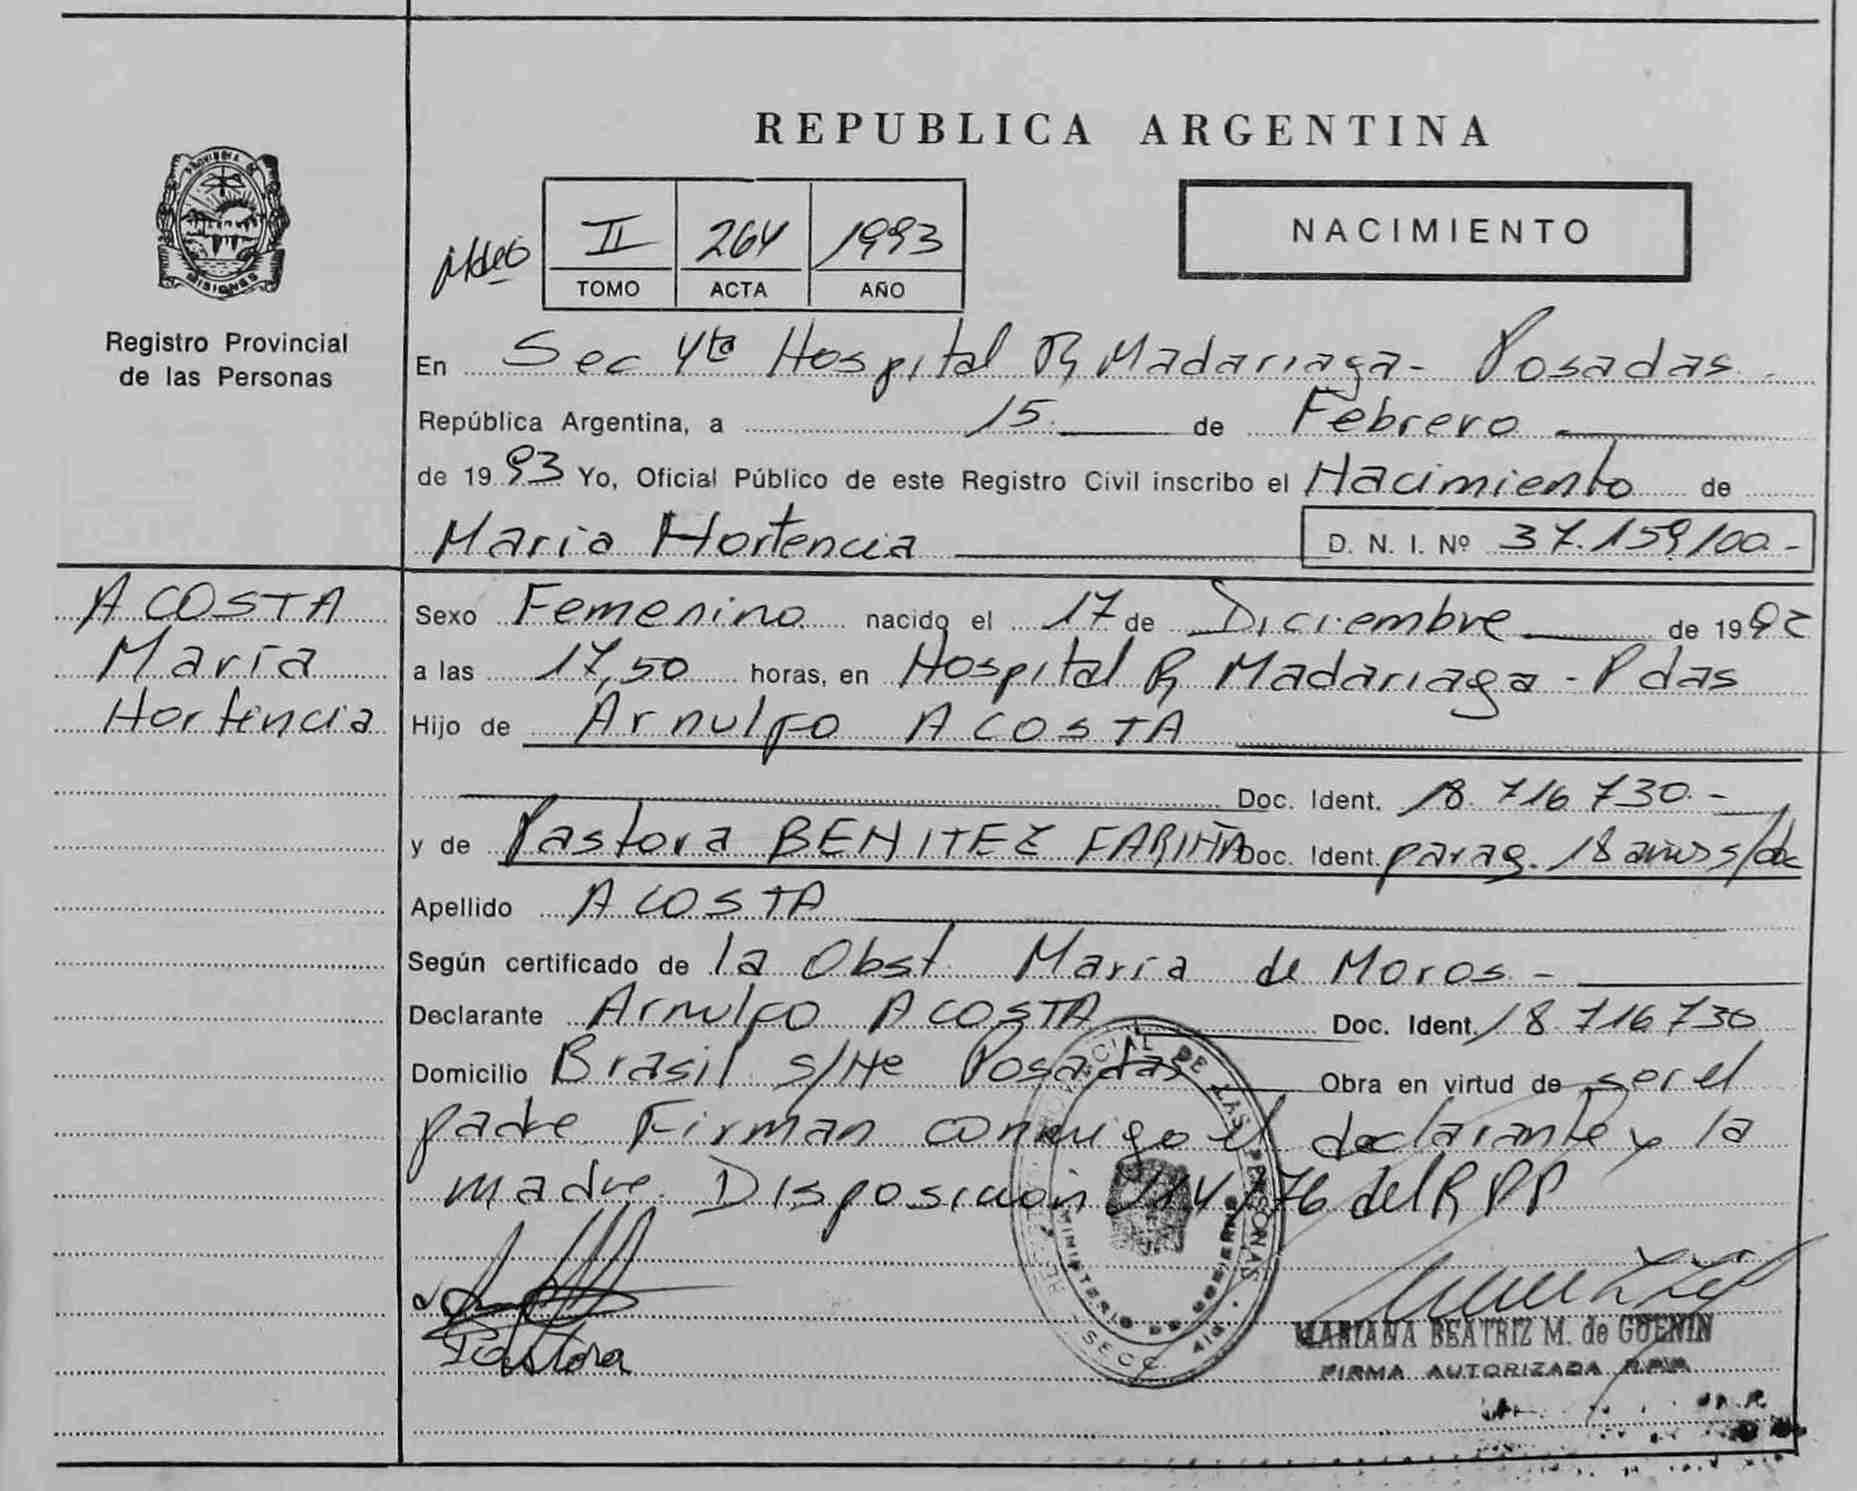 REPUBLICA ARGENTINA
PROVINCIA DE
MISIONES
Registro Provincial
de las Personas
II 264 1993
TOMO ACTA AÑO
NACIMIENTO
En Sec 4ta Hospital R Madariaga - Posadas
República Argentina, a 15 de Febrero
de 1993 Yo, Oficial Público de este Registro Civil inscribo el Nacimiento de
Maria Hortencia D. N. I. Nº 37.159100.-
ACOSTA
María
Hortencia
Sexo Femenino nacido el 17 de Diciembre de 1992
a las 17,50 horas, en Hospital R Madariaga - Pdas
Hijo de Arnulfo ACOSTA
Doc. Ident. 18.716730.-
y de Pastora BENITEZ FARIÑA Doc. Ident. parag. 18 años s/doc
Apellido ACOSTA
Según certificado de la Obst. María de Moros -
Declarante Arnulfo ACOSTA Doc. Ident. 18716730
Domicilio Brasil s/Ne Posadas Obra en virtud de ser el
padre Firman conmigo el declarante y la
madre. Disposición /76 del RPP
Pastora
MINISTERIO DE GOBIERNO
DE LAS PERSONAS
SECC.
MARIANA BEATRIZ M. de GUENIN
FIRMA AUTORIZADA R.P.P.